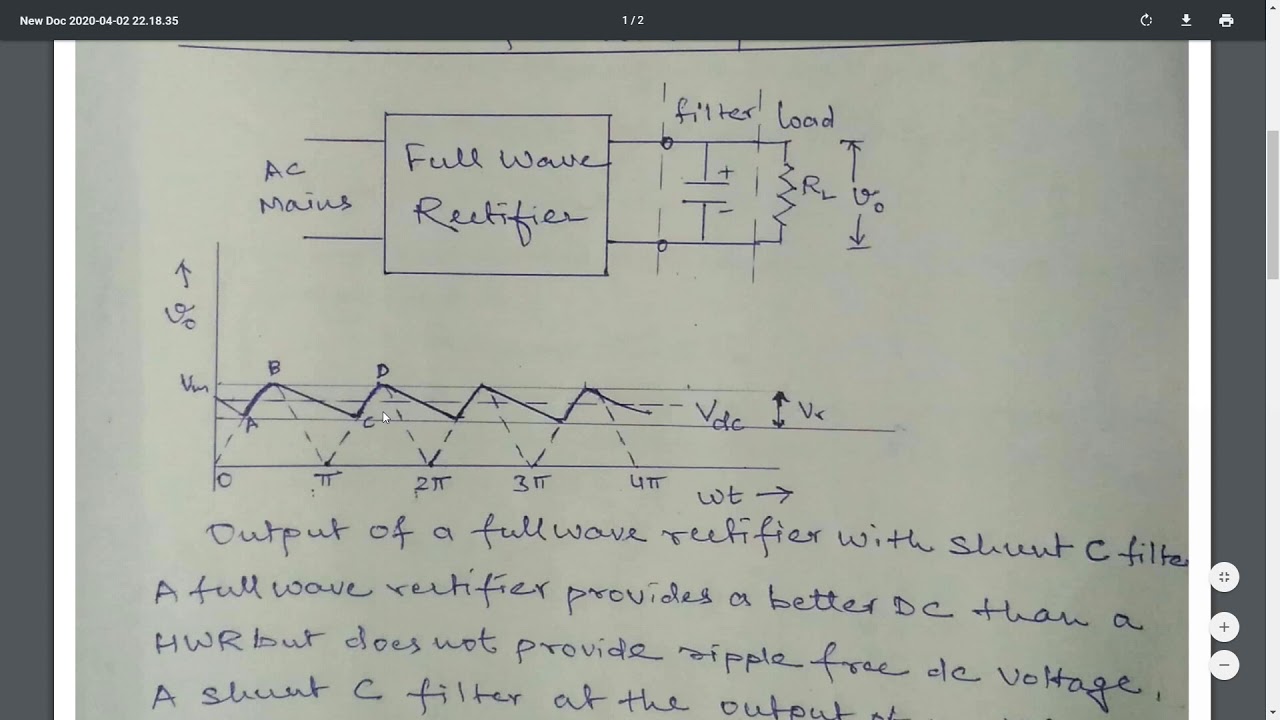 New Doc 2020-04-02 22.18.35
1 / 2
filter load
AC
Mains
Full Wave
Rectifier
+
-
RL
vo
vo
Vm
B
D
A
C
Vdc
Vr
0
π
2π
3π
4π
wt →
Output of a fullwave rectifier with shunt C filte
A fullwave rectifier provides a better DC than a
HWR but does not provide ripple free dc voltage.
A shunt C filter at the output